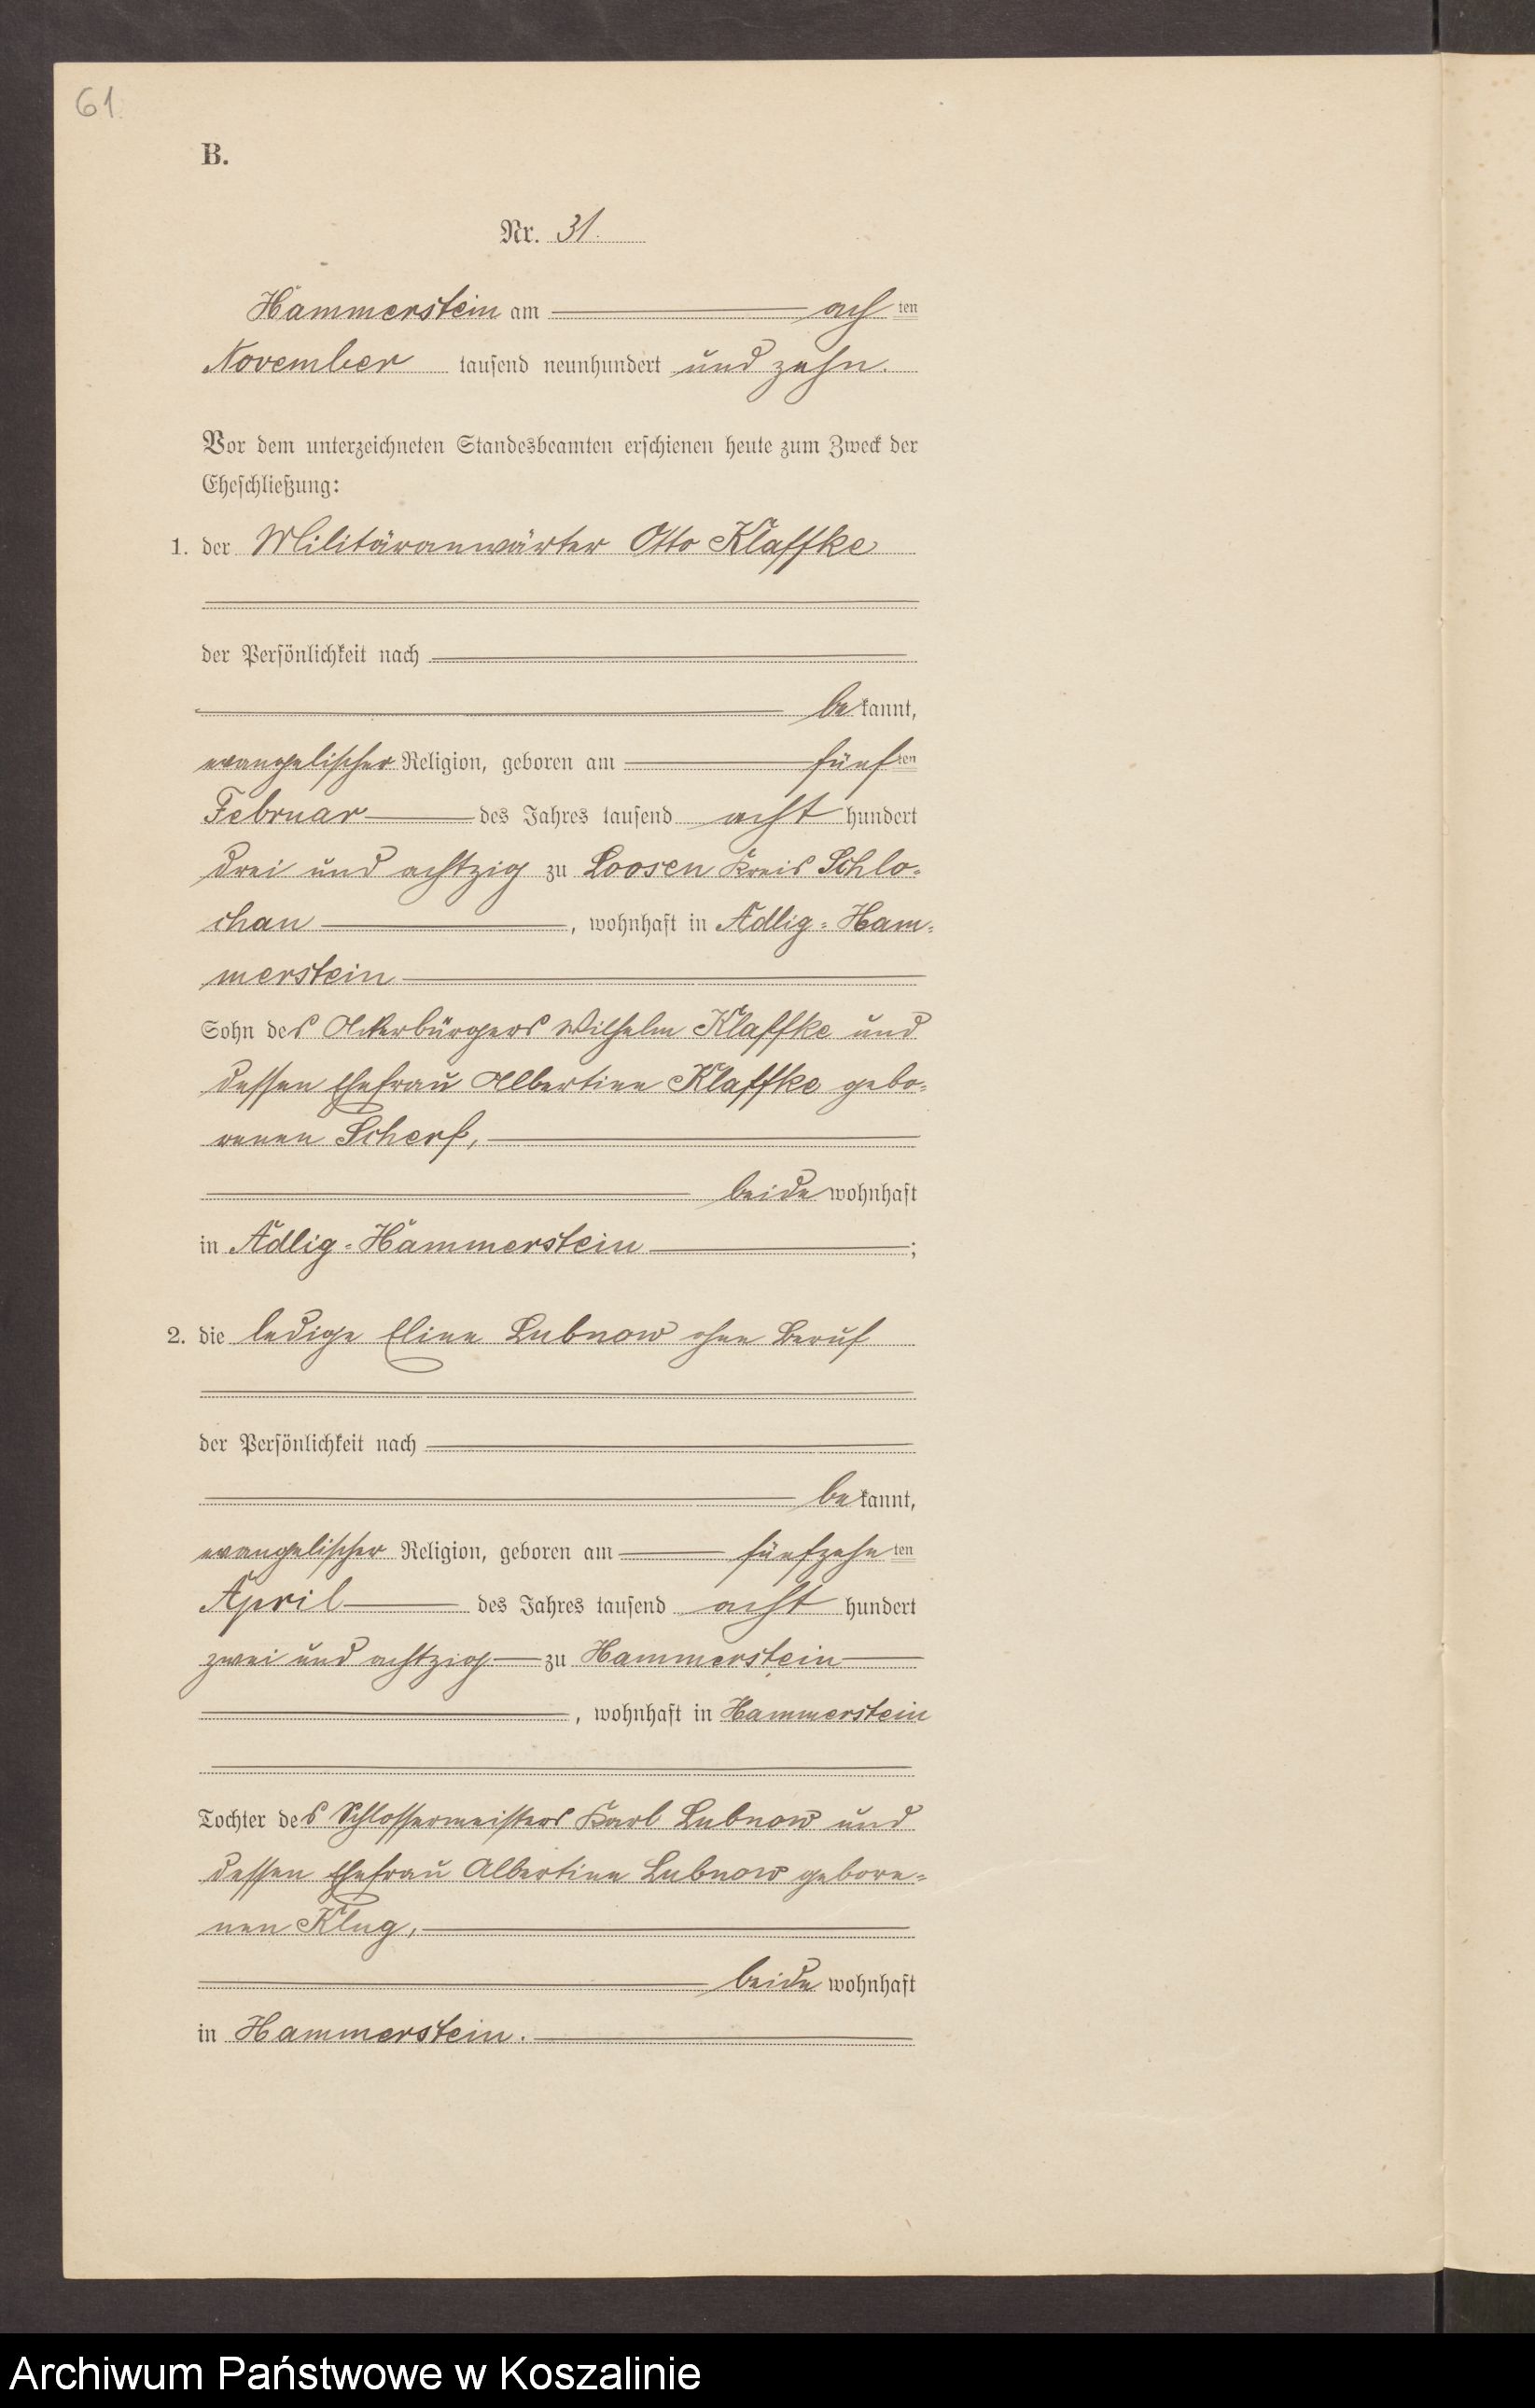 61
B.
Nr. 31.
Hammerstein am ach ten
November tausend neunhundert und zehn.
Vor dem unterzeichneten Standesbeamten erschienen heute zum Zweck der
Eheschließung:
1. der Militäranwärter Otto Klaffke
der Persönlichkeit nach
be kannt,
evangelischer Religion, geboren am fünf ten
Februar des Jahres tausend acht hundert
drei und achtzig zu Loosen Kreis Schlo-
chau, wohnhaft in Adlig-Ham-
merstein
Sohn des Ackerbürgers Wilhelm Klaffke und
dessen Ehefrau Albertine Klaffke gebo-
renen Scherf,
beide wohnhaft
in Adlig-Hammerstein;
2. die ledige Eline Lubnow ohne Beruf
der Persönlichkeit nach
be kannt,
evangelischer Religion, geboren am fünfzehn ten
April des Jahres tausend acht hundert
zwei und achtzig zu Hammerstein
, wohnhaft in Hammerstein
Tochter des Schlossermeisters Karl Lubnow und
dessen Ehefrau Albertine Lubnow gebore-
nen Klug,
beide wohnhaft
in Hammerstein.
Archiwum Państwowe w Koszalinie